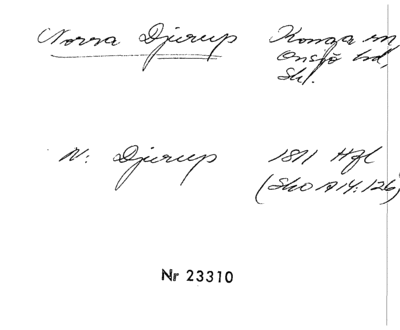 Norra Djurup Konga sn
Onsjö hd,
Sk.
N: Djurup 1811 Hfl
(Sko A14:126)
Nr 23310